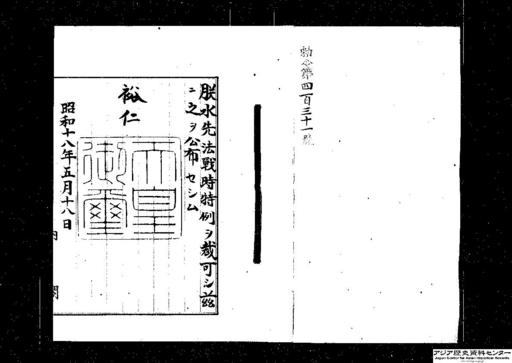 勅令第四百三十一號
朕水先法戰時特例ヲ裁可シ茲
ニ之ヲ公布セシム
裕仁
天皇
御璽
昭和十八年五月十八日
内閣
アジア歴史資料センター
Japan Center for Asian Historical Records